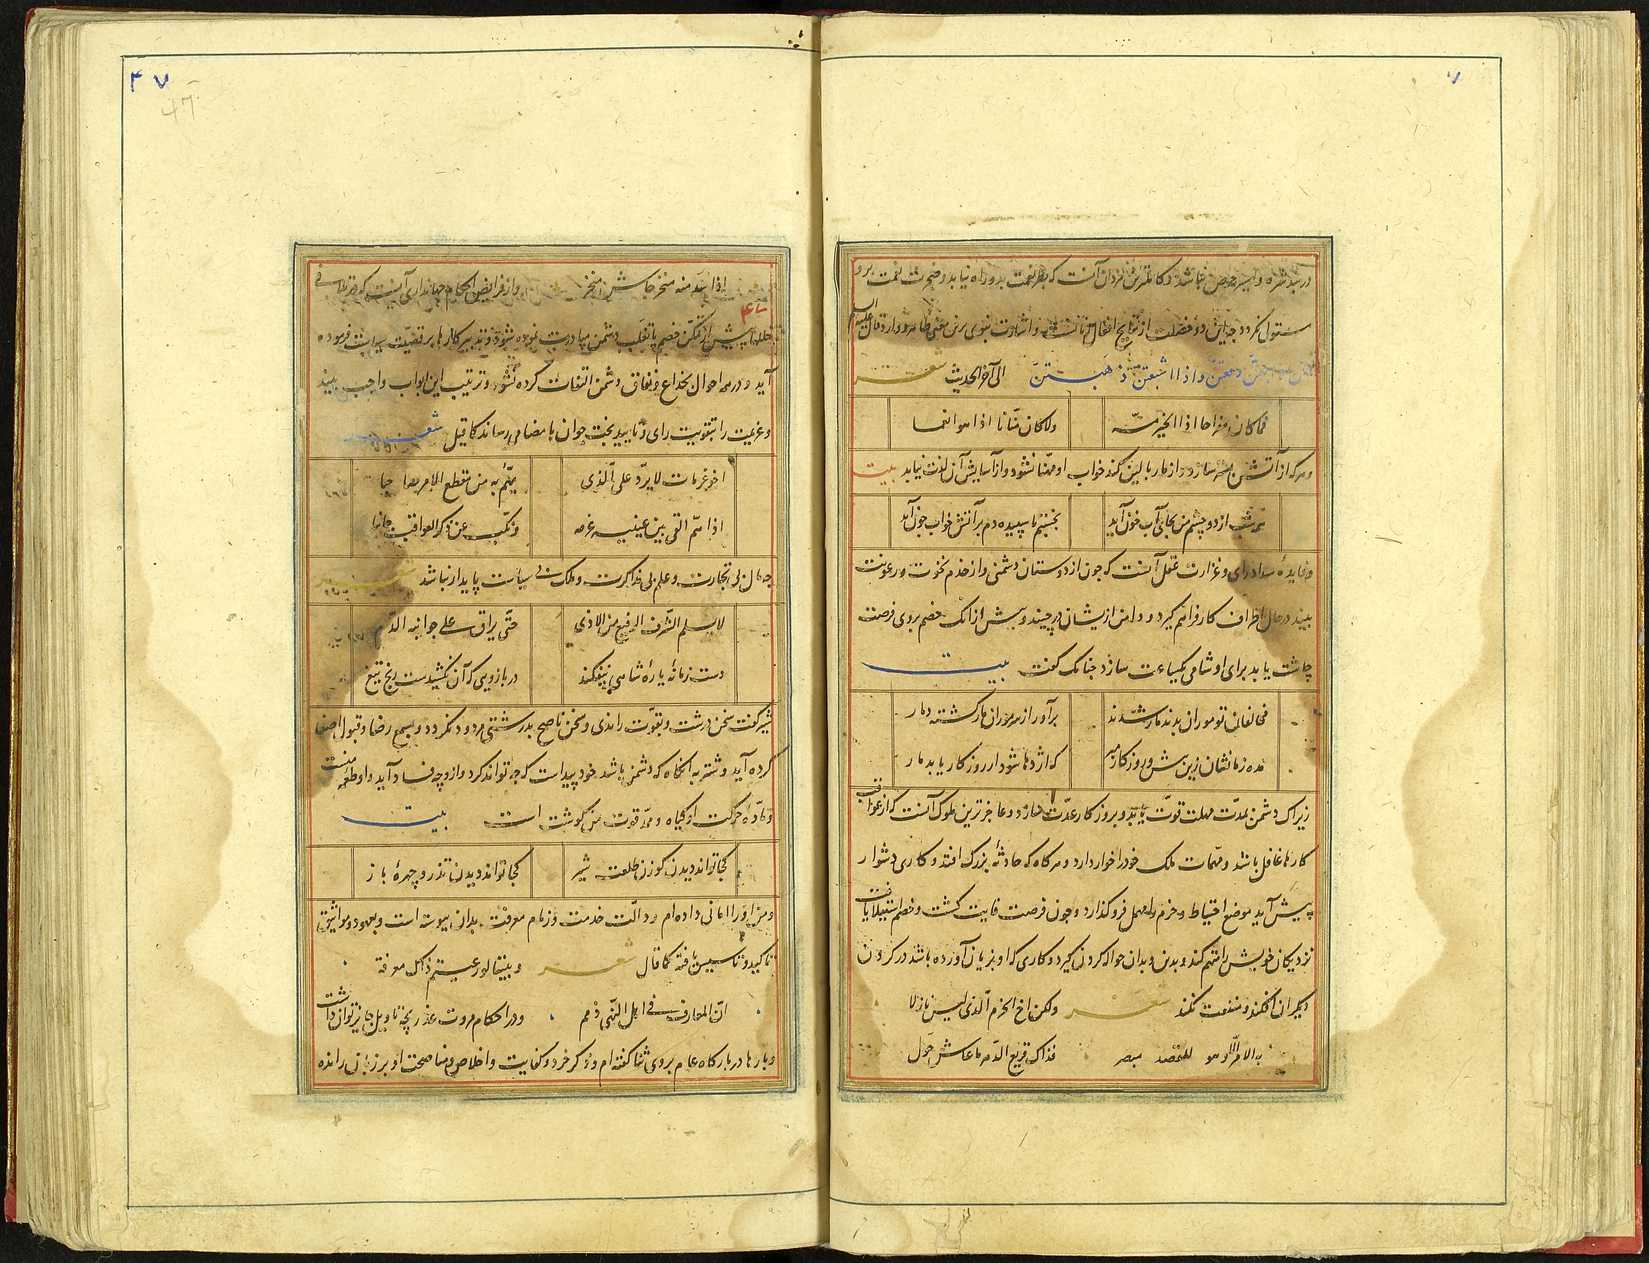 ۷
در بند شره و اسیر حرص نباشد و کاملترین مردان آنست که بطر نعمت بدو راه نیابد و ضجرت نقمت برو
الی آخر الحدیث شعر
فما کان مفراحا اذا الخیر مسه ولا کان منانا اذا هو انعما
و هر که از آتش بستر سازد و از مار بالین کند خواب او مهنا نشود و از آسایش آن لذت نیابد بیت
هر شب از دو چشم من بجای آب خون آید بخسبم تا سپیده دم بر آتش خواب چون آید
و فایدهٔ سداد رای و غزارت عقل آنست که چون از دوستان دشمنی و از خدم نخوت و رعونت
بیند در حال اطراف کار فراهم گیرد و دامن ازیشان در چیند و پیش از آنک خصم بروی فرصت
چاشت یابد برای او شامی بکیاءت سازد چنانک گفت بیت
مخالفان تو موران بدند مار شدند برآور از سر موران مار گشته دمار
مده زمانشان زین بیش و روزگار مبر که اژدها شود ار روزگار یابد مار
زیراک دشمن بمدت مهلت قوت یابد و بروزگار عدت سازد و عاجزترین ملوک آنست که از عواقب
کارها غافل باشد و مهمات ملک خود را خوار دارد و هر گاه که حادثهٔ بزرگ افتد و کاری دشوار
پیش آید موضع احتیاط و حزم را مهمل فرو گذارد و چون فرصت فایت گشت و خصم استیلا یافت
نزدیکان خویش را متهم کند و بدین و بدان حواله کردن گیرد و کاری که او بزیان آورده باشد در گردن
دیگران افکند و منفعت نکند شعر ولکن اخو الحزم الذی لیس نازلا
به الامر الا و هو للقصد مبصر فذاک قریع الدهر ما عاش حول
۴۷
47
و از فرایض احکام جهانداری آنست که
پیش از تمکن خصم یا تغلب دشمن مبادرت نموده شود و تدبیر کارها بر قضیت سیاست فرموده
آید و در همه احوال بخداع و نفاق دشمن التفات کرده نشود و ترتیب این ابواب واجب بیند
و عزیمت را بتقویت رای و تایید بخت جوان بامضا می رساند کما قیل شعر
اخو عزمات لا یرد علی الذی یهم به من مقطع الامر صاحبا
اذا هم القی بین عینیه عزمه و نکب عن ذکر العواقب جانبا
چه مال بی تجارت و علم بی مذاکرت و ملک بی سیاست پایدار نباشد شعر
لا یسلم الشرف الرفیع من الاذی حتی یراق علی جوانبه الدم
دست زمانه یارهٔ شاهی نیفکند در بازویی که آن نکشیدست رنج تیغ
شیر گفت سخن درشت و بقوت راندی و سخن ناصح بدرشتی مردود نگردد و بسمع رضا و قبول اصغا
کرده آید و شتربه آنگاه که دشمن باشد خود پیداست که چه تواند کرد و ازو چه فساد آید و او طعمه منست
و مادهٔ حرکت او گیاه و مدد قوت من گوشت است بیت
کجا تواند دیدن گوزن طلعت شیر کجا تواند دیدن تذرو چهرهٔ باز
و من او را امانی داده ام و دالت خدمت و زمام معرفت بدان پیوسته است و بعهود و مواثیق
تاکید و تاسیس یافته کما قال شعر و بیننا لو رعیتم ذاک معرفة
ان المعارف فی اهل النهی ذمم و در احکام مروت غدر بچه تاویل جایز توان داشت
و بارها در بارگاه عام بروی ثنا گفته ام و ذکر خرد و کفایت و اخلاص و مناصحت او بر زبان رانده